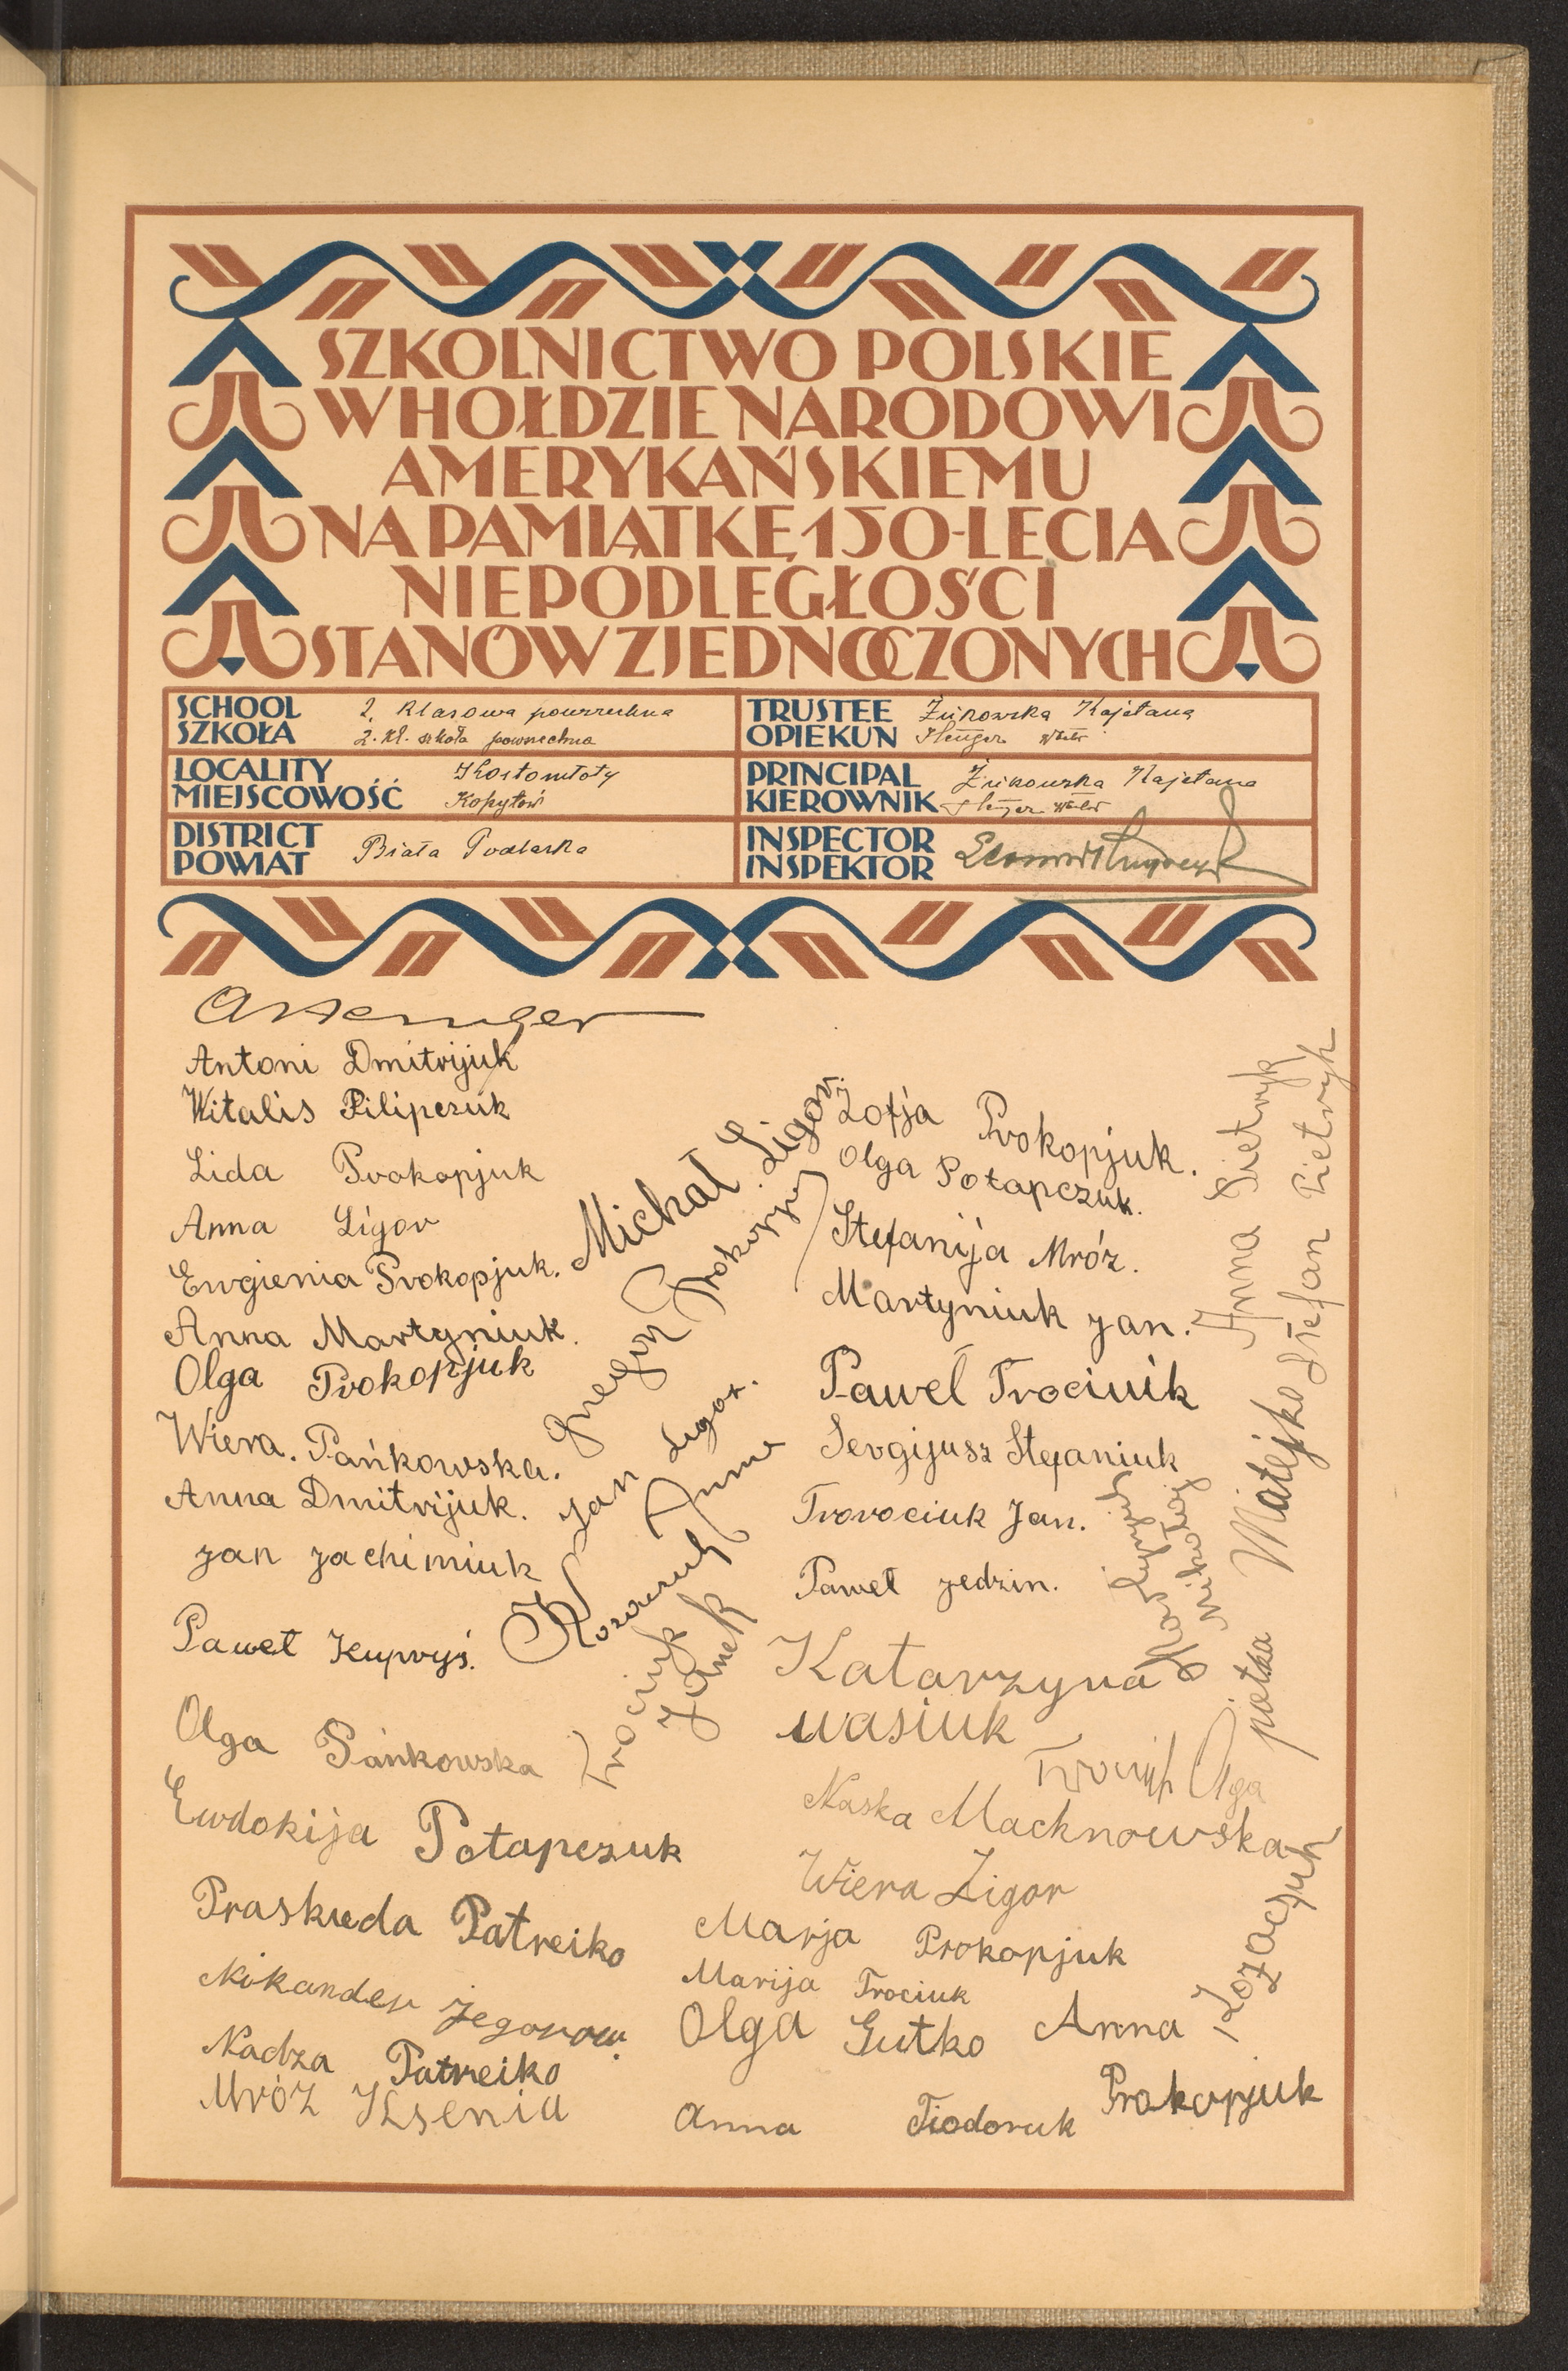 SZKOLNICTWO POLSKIE
W HOŁDZIE NARODOWI
AMERYKAŃSKIEMU
NA PAMIĄTKĘ 150-LECIA
NIEPODLEGŁOŚCI
STANÓW ZJEDNOCZONYCH
SCHOOL
SZKOŁA
2. klasowa powszechna
2. kl. szkoła powszechna
TRUSTEE
OPIEKUN
Żukowska Kajetana
LOCALITY
MIEJSCOWOŚĆ
Kostomłoty
Kopytów
PRINCIPAL
KIEROWNIK
Żukowska Kajetana
DISTRICT
POWIAT
Biała Podlaska
INSPECTOR
INSPEKTOR
Antoni Dmitrijuk
Witalis Pilipczuk
Lida Prokopjuk
Anna Ligor
Ewgienia Prokopjuk.
Anna Martyniuk.
Olga Prokopjuk
Wiera. Pańkowska.
Anna Dmitrijuk.
Jan Jachimiuk
Paweł Kupryś.
Olga Pańkowska
Ewdokija Potapczuk
Praskueda Patreiko
Nikander Jegorow.
Nadza Patreiko
Mróz Ksenia
Michał Ligor.
Jan Ligor.
Anna
Trociuk
Janek
Zofja Prokopjuk.
Olga Potapczuk.
Stefanija Mróz.
Martyniuk Jan.
Paweł Trociuik
Sergijusz Stefaniuk
Trorociuk Jan.
Paweł Jedzin.
Katarzyna
wasiuk
Trociuk Olga
Naska Machnowska
Wiera Ligor
Marja Prokopjuk
Marija Trociuk
Olga Gutko
Anna
Prokopjuk
Anna Fiodoruk
Mikołaj
Anna Pietryk
Stefan Pietryk
Matejko